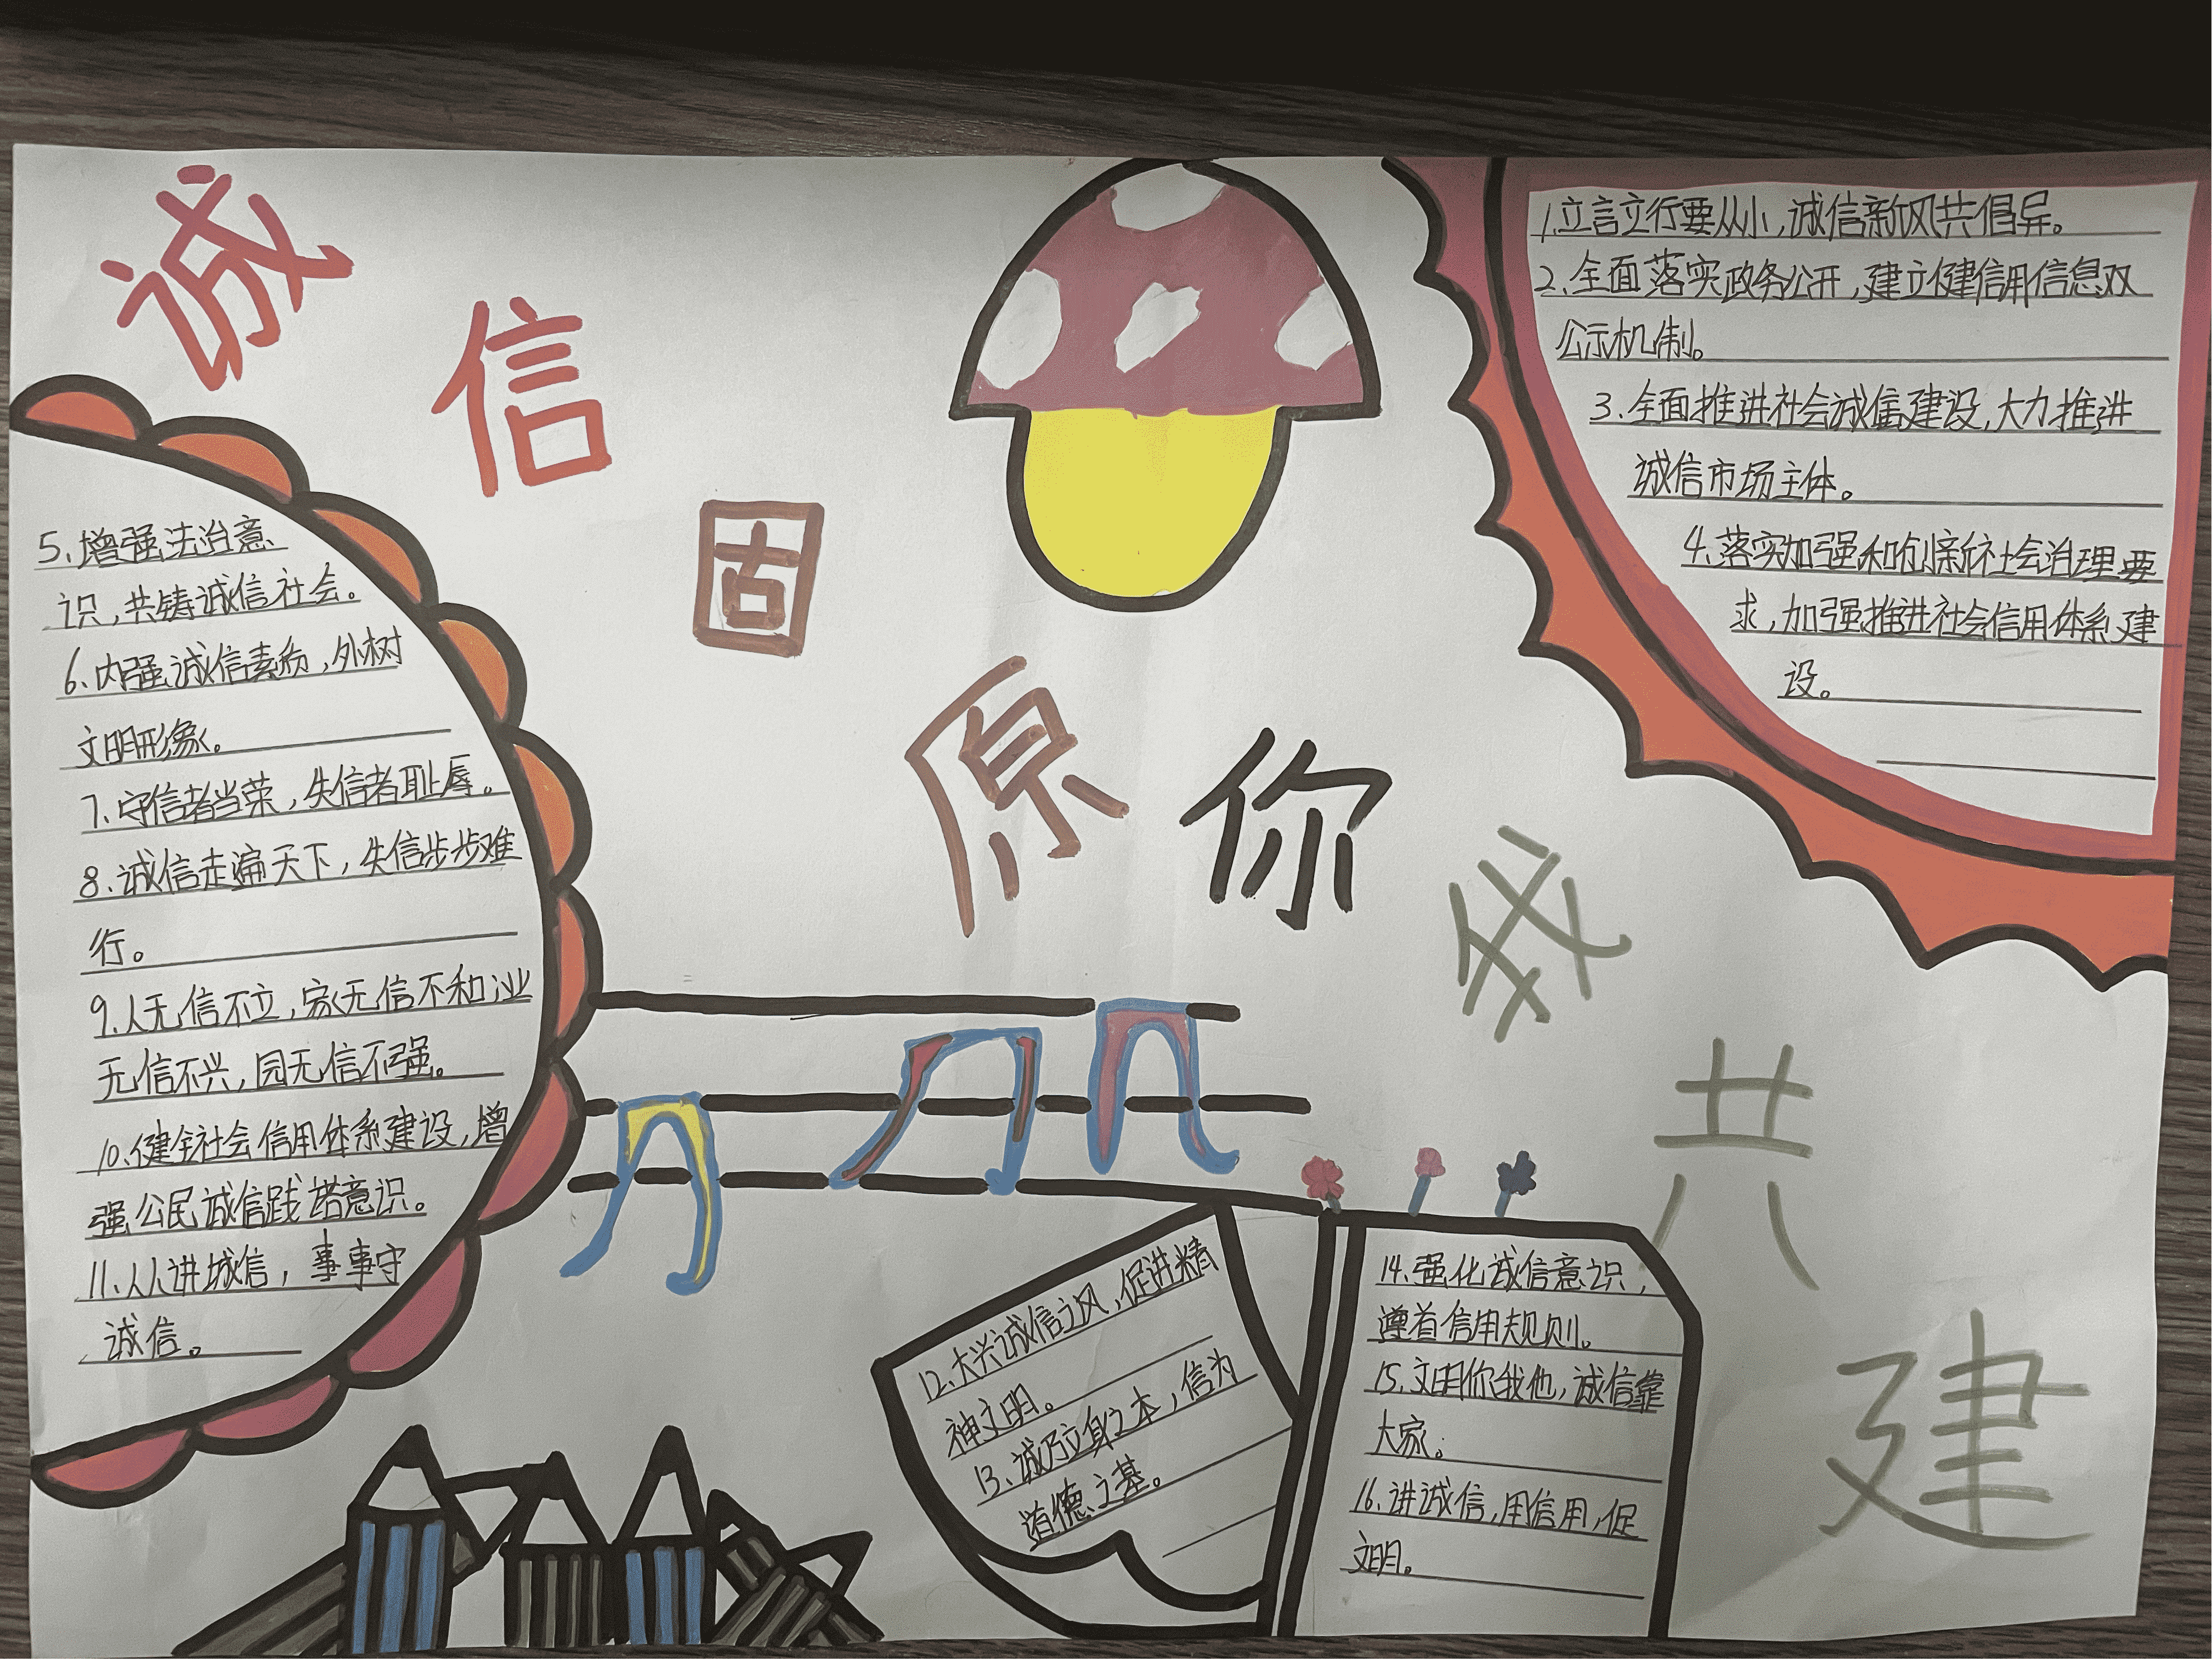 诚信固原你我共建
1.立言立行要从小,诚信新风共倡异。
2.全面落实政务公开,建立健信用信息双
公示机制。
3.全面推进社会诚信建设,大力推进
诚信市场主体。
4.落实加强和创新社会治理要
求,加强推进社会信用体系建
设。
5.增强法治意
识,共铸诚信社会。
6.内强诚信素质,外树
文明形象。
7.守信者当荣,失信者耻辱。
8.诚信走遍天下,失信步步难
行。
9.人无信不立,家无信不和业
无信不兴,园无信不强。
10.健全社会信用体系建设,增
强公民诚信践诺意识。
11.人人讲城信,事事守
诚信。
12.大兴诚信之风,促进精
神文明。
13.诚乃立身之本,信为
道德之基。
14.强化诚信意识,
遵首信用规则。
15.文明你我他,诚信靠
大家。
16.讲诚信,用信用,促
文明。